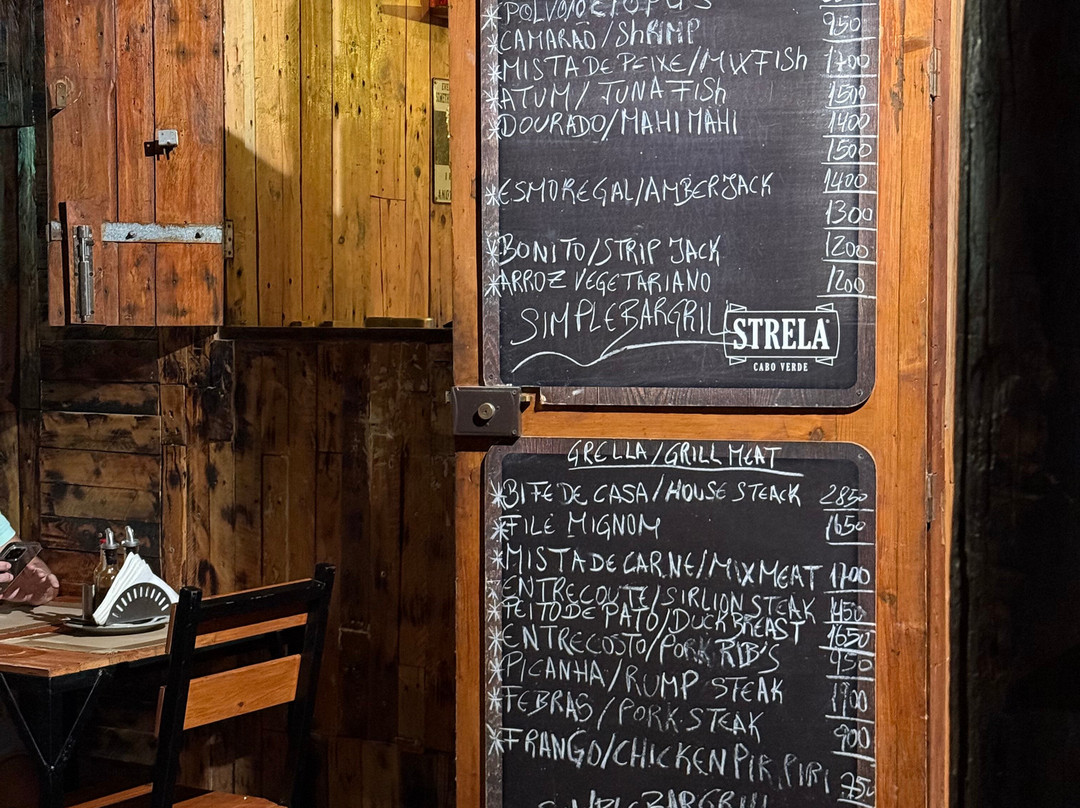 POLVO/OCTOPUS
CAMARAO/SHRIMP 950
MISTA DE PEIXE/MIX FISH 1700
ATUM/TUNA FISH 1500
DOURADO/MAHI MAHI 1400
1500
ESMOREGAL/AMBERJACK 1400
1300
BONITO/STRIP JACK 1200
ARROZ VEGETARIANO 1200
SIMPLE BAR GRILL
STRELA
CABO VERDE
GRELLA/GRILL MEAT
BIFE DE CASA/HOUSE STEACK 2850
FILÉ MIGNOM 1650
MISTA DE CARNE/MIX MEAT 1700
ENTRECOUTE/SIRLION STEAK 1450
PEITO DE PATO/DUCK BREAST 1650
ENTRECOSTO/PORK RIB'S 950
PICANHA/RUMP STEAK 1700
FEBRAS/PORK STEAK 900
FRANGO/CHICKEN PIR PIRI 750
BAR GRILL